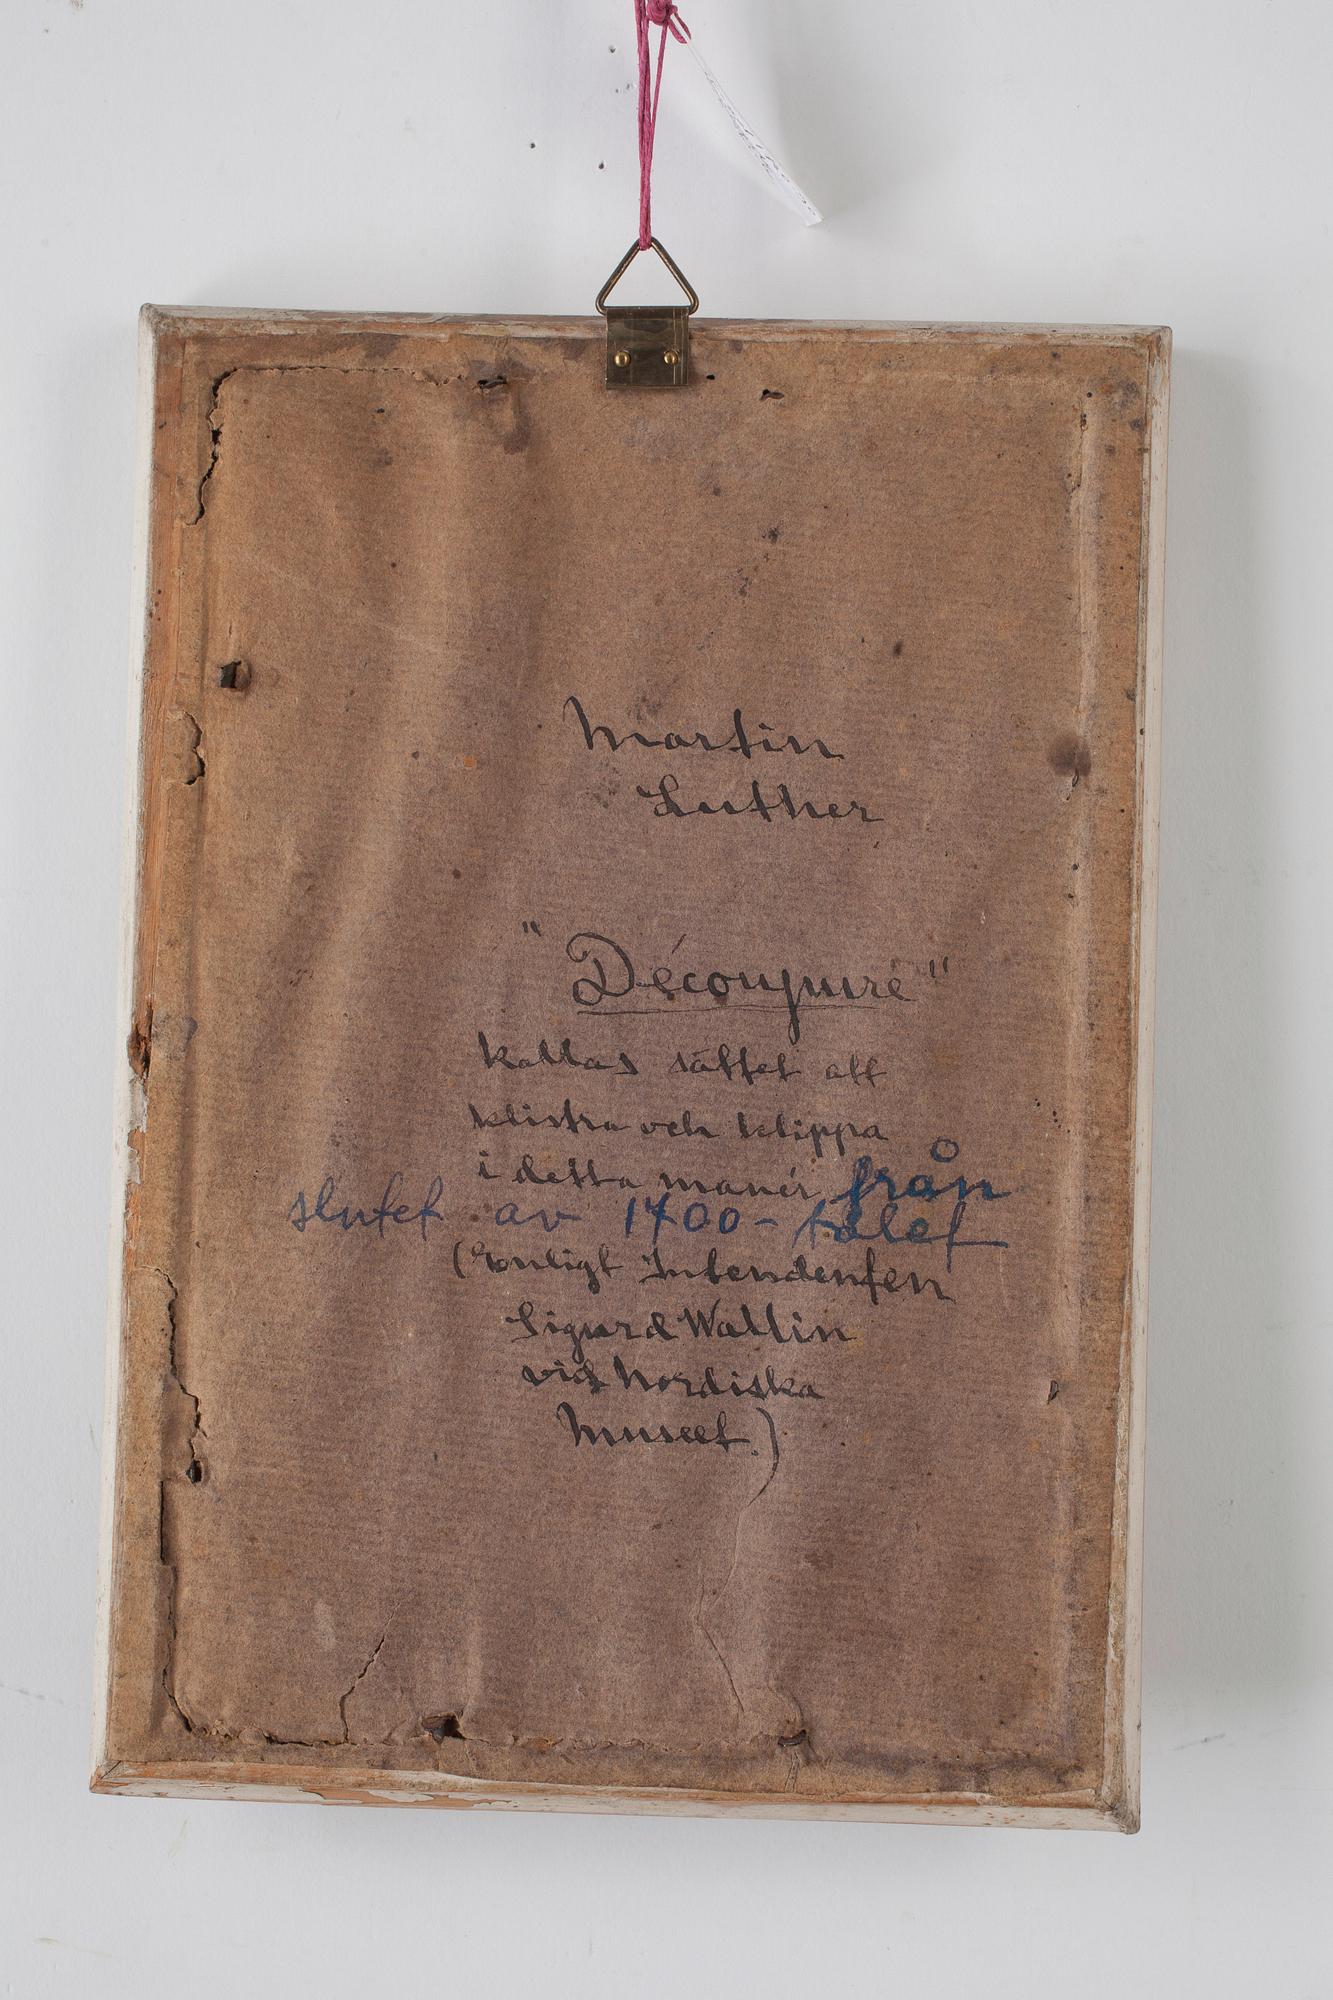 Martin
Luther
"Découpuré"
kallas sättet att
klistra och klippa
i detta manér från
slutet av 1700-talet
(Enligt Intendenten
Sigurd Wallin
vid Nordiska
Museet.)